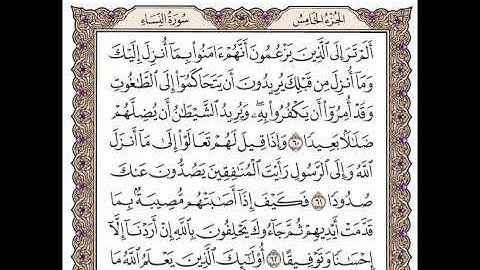 الجزء الخامس سورة النساء
أَلَمْ تَرَ إِلَى ٱلَّذِينَ يَزْعُمُونَ أَنَّهُمْ ءَامَنُوا۟ بِمَآ أُنزِلَ إِلَيْكَ
وَمَآ أُنزِلَ مِن قَبْلِكَ يُرِيدُونَ أَن يَتَحَاكَمُوٓا۟ إِلَى ٱلطَّٰغُوتِ
وَقَدْ أُمِرُوٓا۟ أَن يَكْفُرُوا۟ بِهِۦۖ وَيُرِيدُ ٱلشَّيْطَٰنُ أَن يُضِلَّهُمْ
ضَلَٰلَۢا بَعِيدًا ٦٠ وَإِذَا قِيلَ لَهُمْ تَعَالَوْا۟ إِلَىٰ مَآ أَنزَلَ
ٱللَّهُ وَإِلَى ٱلرَّسُولِ رَأَيْتَ ٱلْمُنَٰفِقِينَ يَصُدُّونَ عَنكَ
صُدُودًا ٦١ فَكَيْفَ إِذَآ أَصَٰبَتْهُم مُّصِيبَةٌۢ بِمَا
قَدَّمَتْ أَيْدِيهِمْ ثُمَّ جَآءُوكَ يَحْلِفُونَ بِٱللَّهِ إِنْ أَرَدْنَآ إِلَّآ
إِحْسَٰنًا وَتَوْفِيقًا ٦٢ أُو۟لَٰٓئِكَ ٱلَّذِينَ يَعْلَمُ ٱللَّهُ مَا